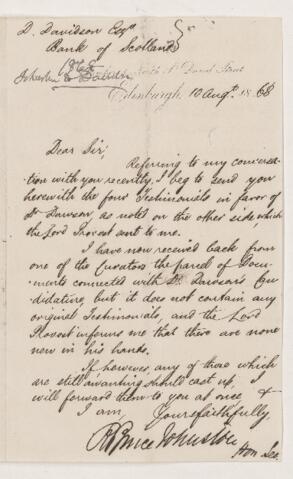 D. Davidson Esqr.
Bank of Scotland
1868
Johnston
North St. David Street
Edinburgh, 10 Augt. 1868
Dear Sir,
Referring to my conversa-
tion with you recently, I beg to send you
herewith the four Testimonials in favor of
Dr Dawson, as noted on the other side, which
the Lord Provost sent to me.
I have now received back from
one of the Curators the parcel of Docu-
ments connected with Dr. Dawson's Can-
didature, but it does not contain any
original Testimonials, and the Lord
Provost informs me that there are none
now in his hands.
If however, any of those which
are still awanting should cast up, I
will forward them to you at once, &
I am, Yours faithfully,
R Bruce Johnston
Hon Sec.